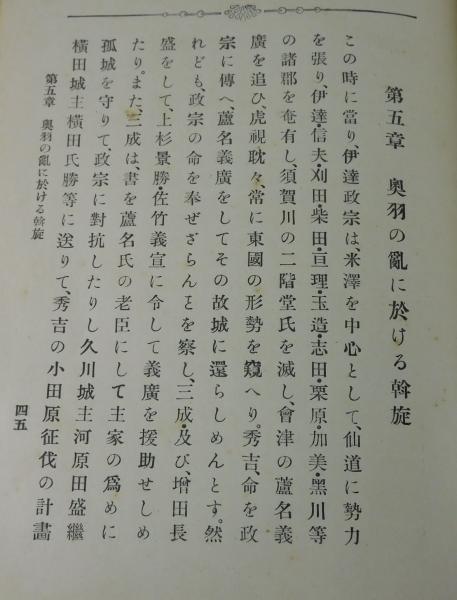 第五章　奧羽の亂に於ける斡旋
この時に當り、伊達政宗は、米澤を中心として、仙道に勢力
を張り、伊達・信夫・刈田・柴田・亘理・玉造・志田・栗原・加美・黑川等
の諸郡を奄有し、須賀川の二階堂氏を滅し、會津の蘆名義
廣を追ひ、虎視眈々、常に東國の形勢を窺へり。秀吉、命を政
宗に傳へ、蘆名義廣をしてその故城に還らしめんとす。然
れども、政宗の命を奉ぜざらんとを察し、三成・及び、增田長
盛をして、上杉景勝・佐竹義宣に令して義廣を援助せしめ
たり。また、三成は書を蘆名氏の老臣にして主家の爲めに
孤城を守りて、政宗に對抗したりし久川城主河原田盛繼
橫田城主橫田氏勝等に送りて、秀吉の小田原征伐の計畫
第五章　奧羽の亂に於ける斡旋
四五